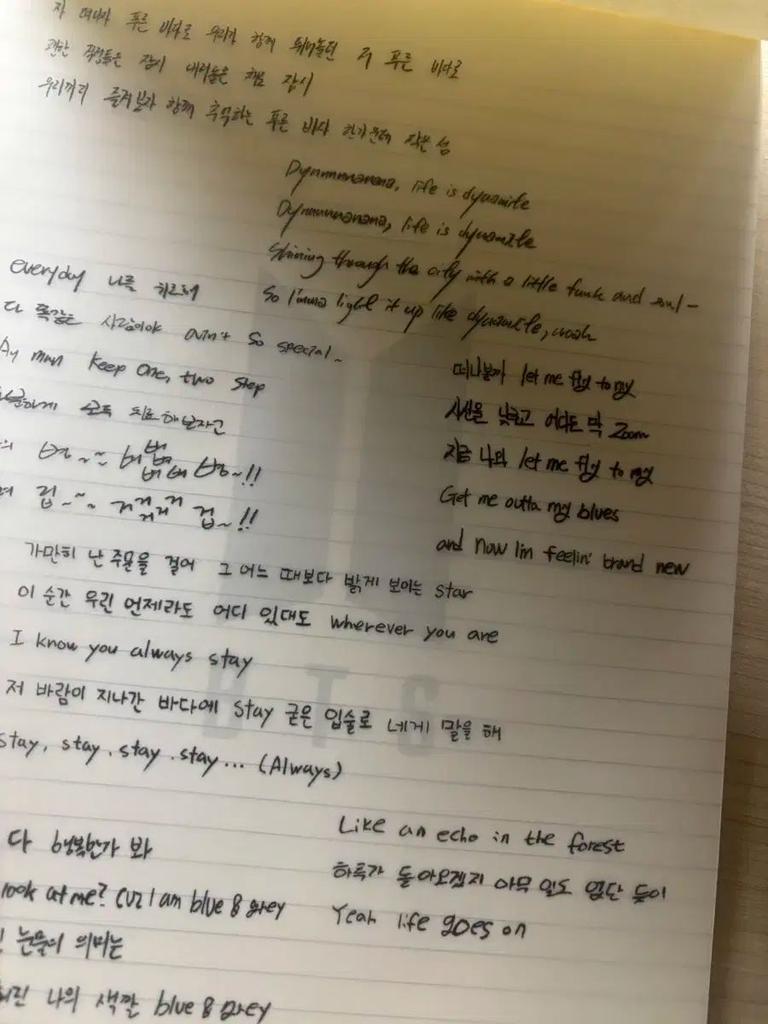 자 떠나자 푸른 바다로 우리가 함께 뛰어놀던 저 푸른 바다로
괜한 걱정들은 잠시 내려놓은 채로 잠시
우리끼리 즐겨보자 함께 추억하는 푸른 바다 한가운데 작은 섬
Dynnnnnanana, life is dynamite
Dynnnnnanana, life is dynamite
Shining through the city with a little funk and soul-
So I'mma light it up like dynamite, woah
everyday 나를 위로해
다 똑같은 사람이야 ain't so special
Ay man Keep one, two step
모두 치료해보자고
떠나볼까 let me fly to my
시선을 낮추고 어디든 막 Zoom
지금 나의 let me fly to my
Get me outta my blues
and now I'm feelin' brand new
겁~~~ 거겁~!!
가만히 난 주문을 걸어 그 어느 때보다 밝게 보이는 star
이 순간 우린 언제라도 어디 있대도 wherever you are
I know you always stay
저 바람이 지나간 바다에 stay 굳은 입술로 네게 말을 해
stay, stay, stay, stay... (Always)
BTS
다 행복한가 봐
look at me? cuz I am blue & grey
눈물의 의미는
나의 색깔 blue & grey
Like an echo in the forest
하루가 돌아오겠지 아무 일도 없단 듯이
Yeah life goes on